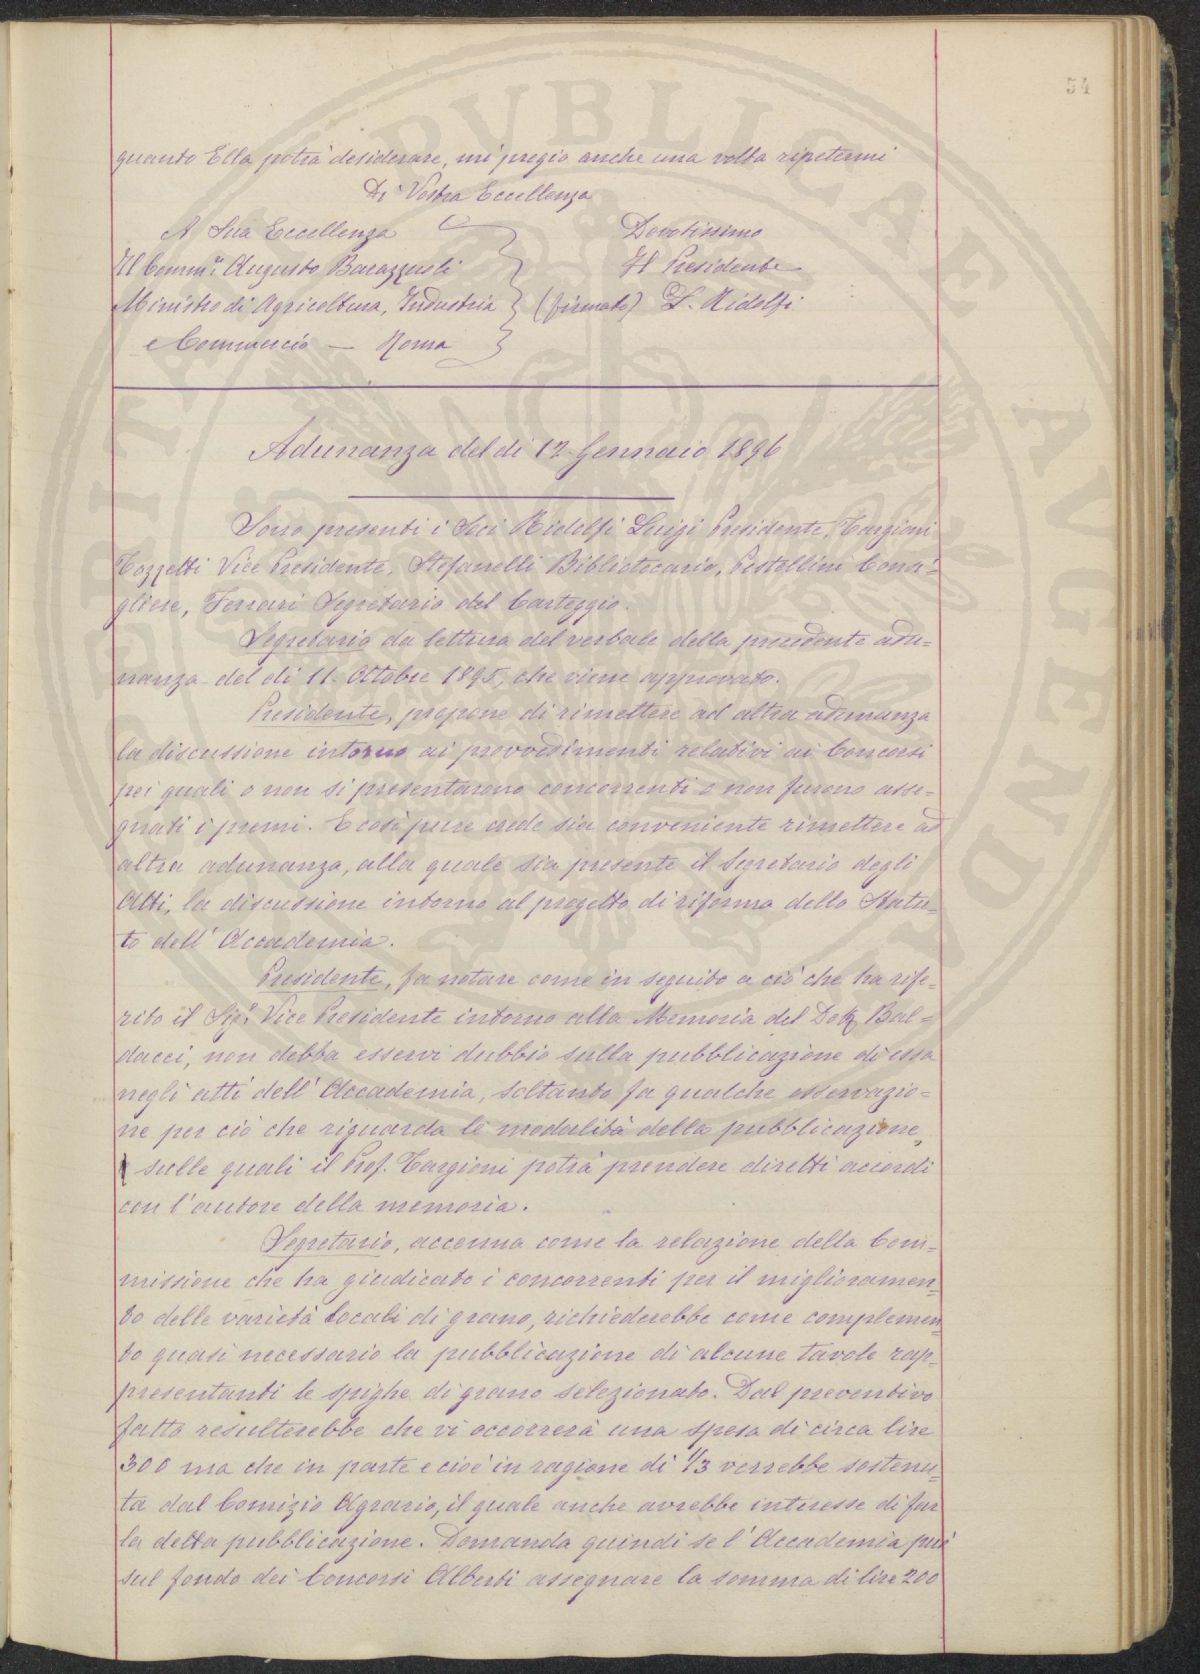 54
quanto Ella potrà desiderare, mi pregio anche una volta ripetermi
Di Vostra Eccellenza
A Sua Eccellenza
Il Comm.r Augusto Barazzuoli
Ministro di Agricoltura, Industria
e Commercio — Roma
Devotissimo
Il Presidente
(firmato) L. Ridolfi
Adunanza del dì 12 Gennaio 1896
Sono presenti i Soci Ridolfi Luigi Presidente, Targioni
Tozzetti Vice Presidente, Stefanelli Bibliotecario, Pestellini Consi=
gliere, Ferrari Segretario del Carteggio.
Segretario da lettura del verbale della precedente adu=
nanza del dì 11 Ottobre 1895, che viene approvato.
Presidente, propone di rimettere ad altra adunanza
la discussione intorno ai provvedimenti relativi ai Concorsi
pei quali o non si presentarono concorrenti o non furono asse=
gnati i premi. E così pure crede sia conveniente rimettere ad
altra adunanza, alla quale sia presente il Segretario degli
Atti, la discussione intorno al progetto di riforma dello Statu=
to dell'Accademia.
Presidente, fa notare come in seguito a ciò che ha rife=
rito il Sig.r Vice Presidente intorno alla Memoria del Dott. Bal=
dacci, non debba esservi dubbio sulla pubblicazione di essa
negli atti dell'Accademia, soltanto fa qualche osservazio=
ne per ciò che riguarda le modalità della pubblicazione,
sulle quali il Prof. Targioni potrà prendere diretti accordi
con l'autore della memoria.
Segretario, accenna come la relazione della Com=
missione che ha giudicato i concorrenti per il miglioramen=
to delle varietà locali di grano, richiederebbe come complemen=
to quasi necessario la pubblicazione di alcune tavole rap=
presentanti le spighe di grano selezionato. Dal preventivo
fatto resulterebbe che vi occorrerà una spesa di circa lire
300 ma che in parte e cioè in ragione di 1/3 verrebbe sostenu=
ta dal Comizio Agrario, il quale anche avrebbe interesse di far
la detta pubblicazione. Domanda quindi se l'Accademia può
sul fondo dei Concorsi Alberti assegnare la somma di lire 200
PVBLICAE AVGENDAE